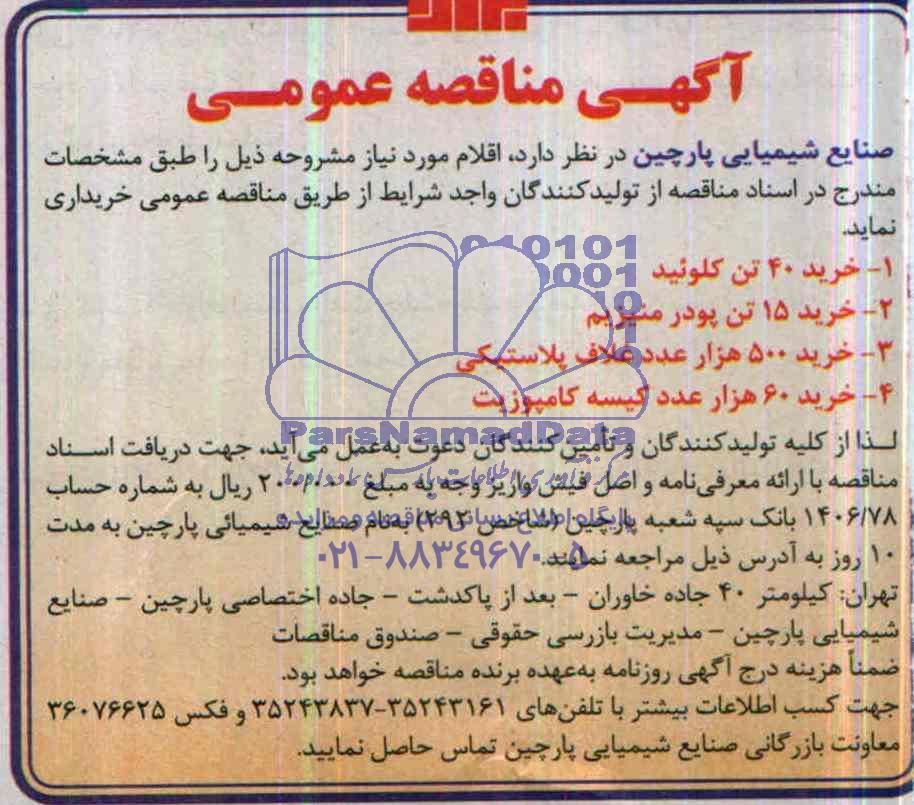 آگهی مناقصه عمومی
صنایع شیمیایی پارچین در نظر دارد، اقلام مورد نیاز مشروحه ذیل را طبق مشخصات
مندرج در اسناد مناقصه از تولیدکنندگان واجد شرایط از طریق مناقصه عمومی خریداری
نماید.
۱- خرید ۴۰ تن کلوئید
۲- خرید ۱۵ تن پودر منیزیم
۳- خرید ۵۰۰ هزار عدد غلاف پلاستیکی
۴- خرید ۶۰ هزار عدد کیسه کامپوزیت
ParsNamadData
لـذا از کلیه تولیدکنندگان و تأمین‌کنندگان دعوت به‌عمل می‌آید، جهت دریافت اسـناد
مناقصه با ارائه معرفی‌نامه و اصل فیش واریز وجه به مبلغ ریال به شماره حساب
۱۴۰۶/۷۸ بانک سپه شعبه پارچین (شاخص ۲۹۲) به‌نام صنایع شیمیائی پارچین به مدت
۱۰ روز به آدرس ذیل مراجعه نمایند.
۰۲۱-۸۸۳۴۹۶۷۰-۵
تهران: کیلومتر ۴۰ جاده خاوران - بعد از پاکدشت - جاده اختصاصی پارچین - صنایع
شیمیایی پارچین - مدیریت بازرسی حقوقی - صندوق مناقصات
ضمناً هزینه درج آگهی روزنامه به‌عهده برنده مناقصه خواهد بود.
جهت کسب اطلاعات بیشتر با تلفن‌های ۳۵۲۴۳۱۶۱-۳۵۲۴۳۸۳۷ و فکس ۳۶۰۷۶۶۲۵
معاونت بازرگانی صنایع شیمیایی پارچین تماس حاصل نمایید.